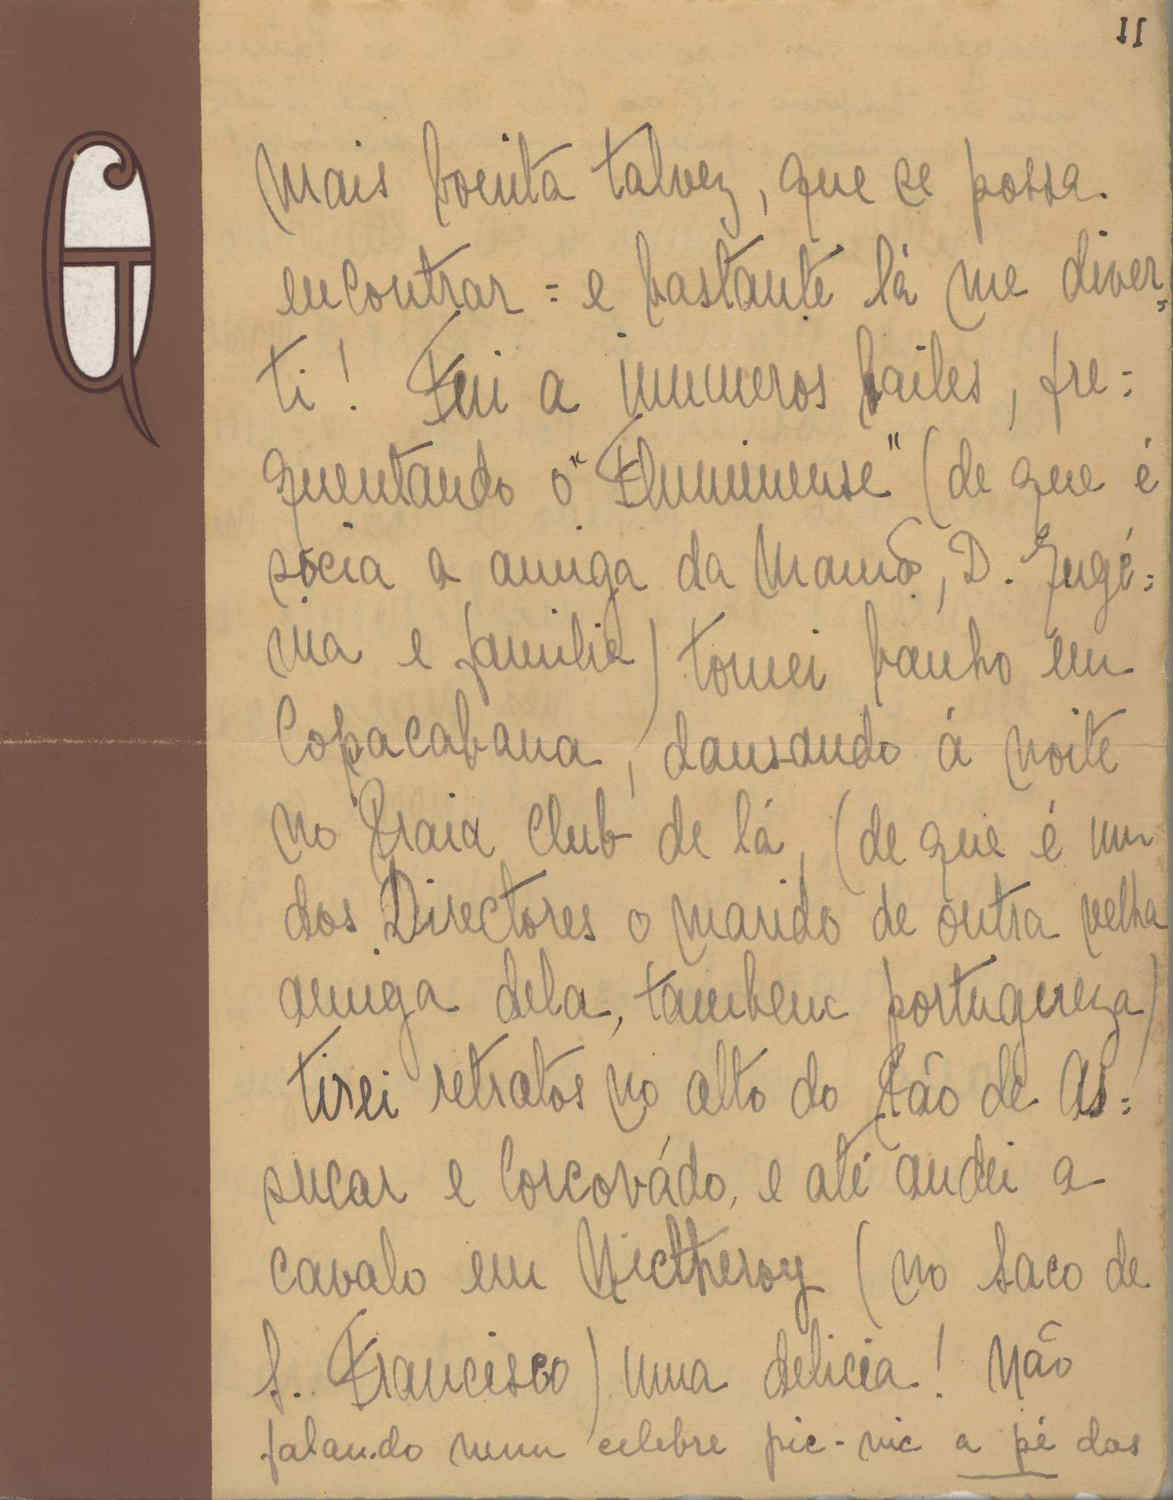 11
mais bonita talvez, que se possa
encontrar = e bastante lá me diver=
ti! Fui a inumeros bailes, fre=
quentando o "Fluminense" (de que é
sócia a amiga da Mamã, D. Eugé=
nia e familia) tomei banho em
Copacabana, dansando á noite
no Praia Club de lá, (de que é um
dos Directores o marido de outra velha
amiga dela, tambem portugueza)
tirei retratos no alto do Pão de As=
sucar e Corcovádo, e até andei a
cavalo em Nictheroy (no Saco de
S. Francisco) uma delicia! Não
falando num celebre pic-nic a pé das